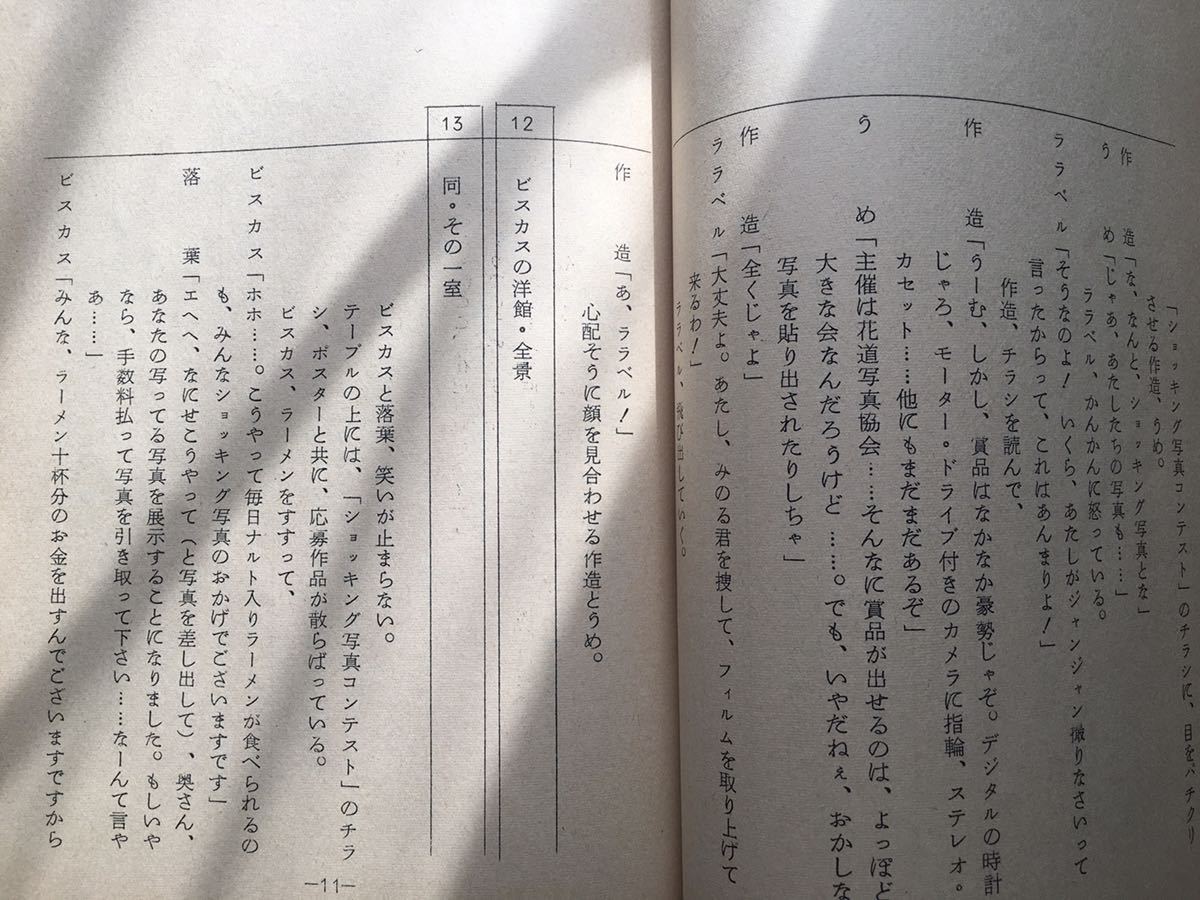 「ショッキング写真コンテスト」のチラシに、目をパチクリ
させる作造、うめ。
作　造「な、なんと、ショッキング写真とな」
う　め「じゃあ、あたしたちの写真も……」
ララベル、かんかんに怒っている。
ララベル「そうなのよ！　いくら、あたしがジャンジャン撮りなさいって
言ったからって、これはあんまりよ！」
作造、チラシを読んで、
作　造「うーむ、しかし、賞品はなかなか豪勢じゃぞ。デジタルの時計
じゃろ、モーター・ドライブ付きのカメラに指輪、ステレオ。
カセット……他にもまだまだあるぞ」
う　め「主催は花道写真協会……そんなに賞品が出せるのは、よっぽど
大きな会なんだろうけど……。でも、いやだねぇ、おかしな
写真を貼り出されたりしちゃ」
作　造「全くじゃよ」
ララベル「大丈夫よ。あたし、みのる君を捜して、フィルムを取り上げて
来るわ！」
ララベル、飛び出していく。
作　造「あ、ララベル！」
心配そうに顔を見合わせる作造とうめ。
12　ビスカスの洋館・全景
13　同・その一室
ビスカスと落葉、笑いが止まらない。
テーブルの上には、「ショッキング写真コンテスト」のチラ
シ、ポスターと共に、応募作品が散らばっている。
ビスカス、ラーメンをすすって、
ビスカス「ホホ……。こうやって毎日ナルト入りラーメンが食べられるの
も、みんなショッキング写真のおかげでございますです」
落　葉「エへへ、なにせこうやって（と写真を差し出して）、奥さん、
あなたの写ってる写真を展示することになりました。もしいや
なら、手数料払って写真を引き取って下さい……なーんて言や
あ……」
ビスカス「みんな、ラーメン十杯分のお金を出すんでございますですから
—11—